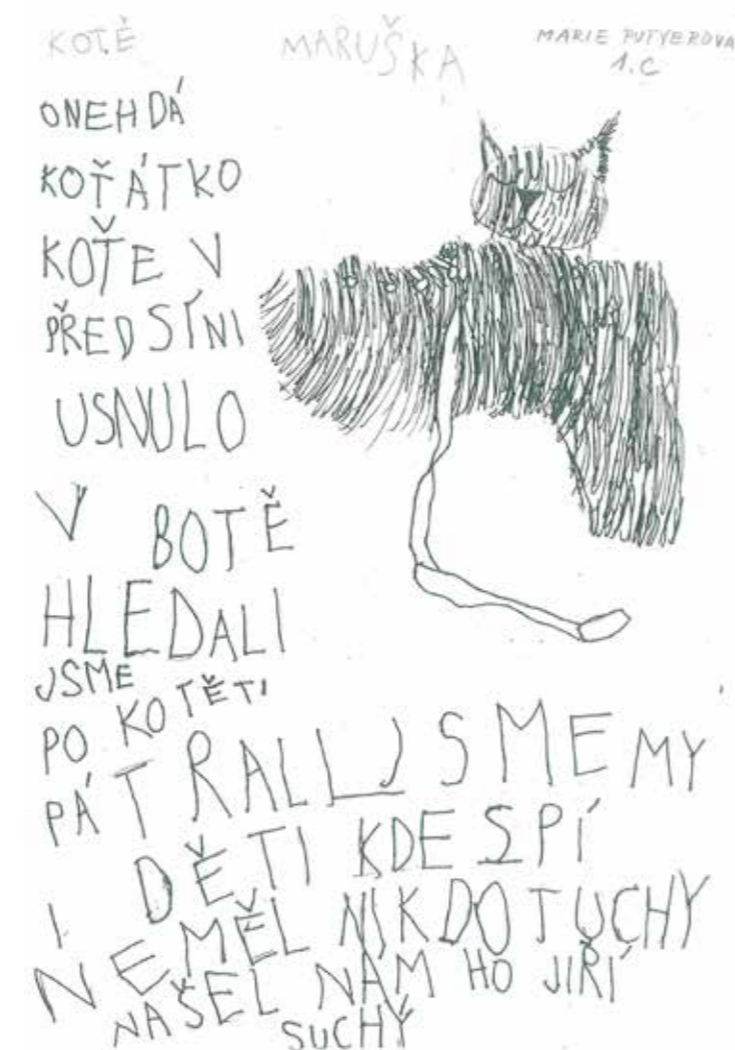 KOTĚ MARUŠKA MARIE PUTYEROVA
1.C
ONEHDÁ
KOŤÁTKO
KOŤE V
PŘEDSÍNI
USNULO
V BOTĚ
HLEDALI
JSME
PO KOTĚTI
PÁTRALI JSME MY
I DĚTI KDE SPÍ
NEMĚL NIKDO TUCHY
NAŠEL NÁM HO JIŘÍ
SUCHÝ